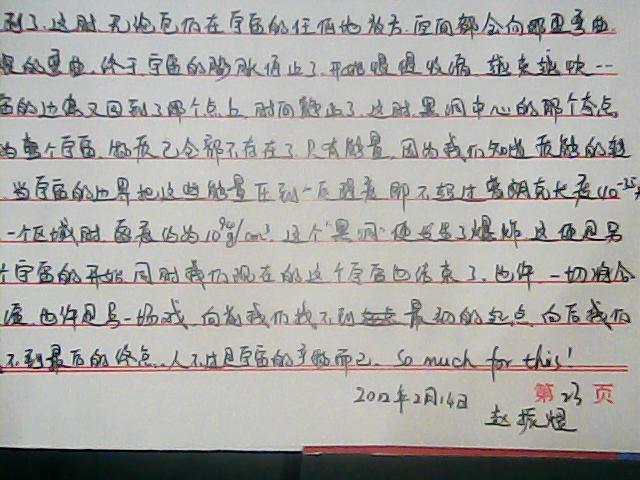 到了.这时无论它们在宇宙的任何地方方,空间都会向那里弯曲.
的弯曲.终于宇宙的膨胀停止了.开始慢慢收缩 越来越快…
宙的边界又回到了那个点上 时间静止了.这时黑洞中心的那个奇点
整个宇宙 物质已全部不存在了.只有能量.因为我们知道质能的转
.当宇宙的边界把这些能量压到一定程度 即不超过普朗克长度(10⁻³⁵
一个区域时 密度约为10⁹⁴g/cm³.这个"黑洞"便发生了爆炸 这便是另
个宇宙的开始 同时我们现在的这个宇宙也结束了.也许 一切将会
也许是另一场戏.向前我们找不到最初的起点 向后我们
不到最后的终点.人不过是宇宙的而已. So much for this!
2012年2月14日
第23页
赵振煜